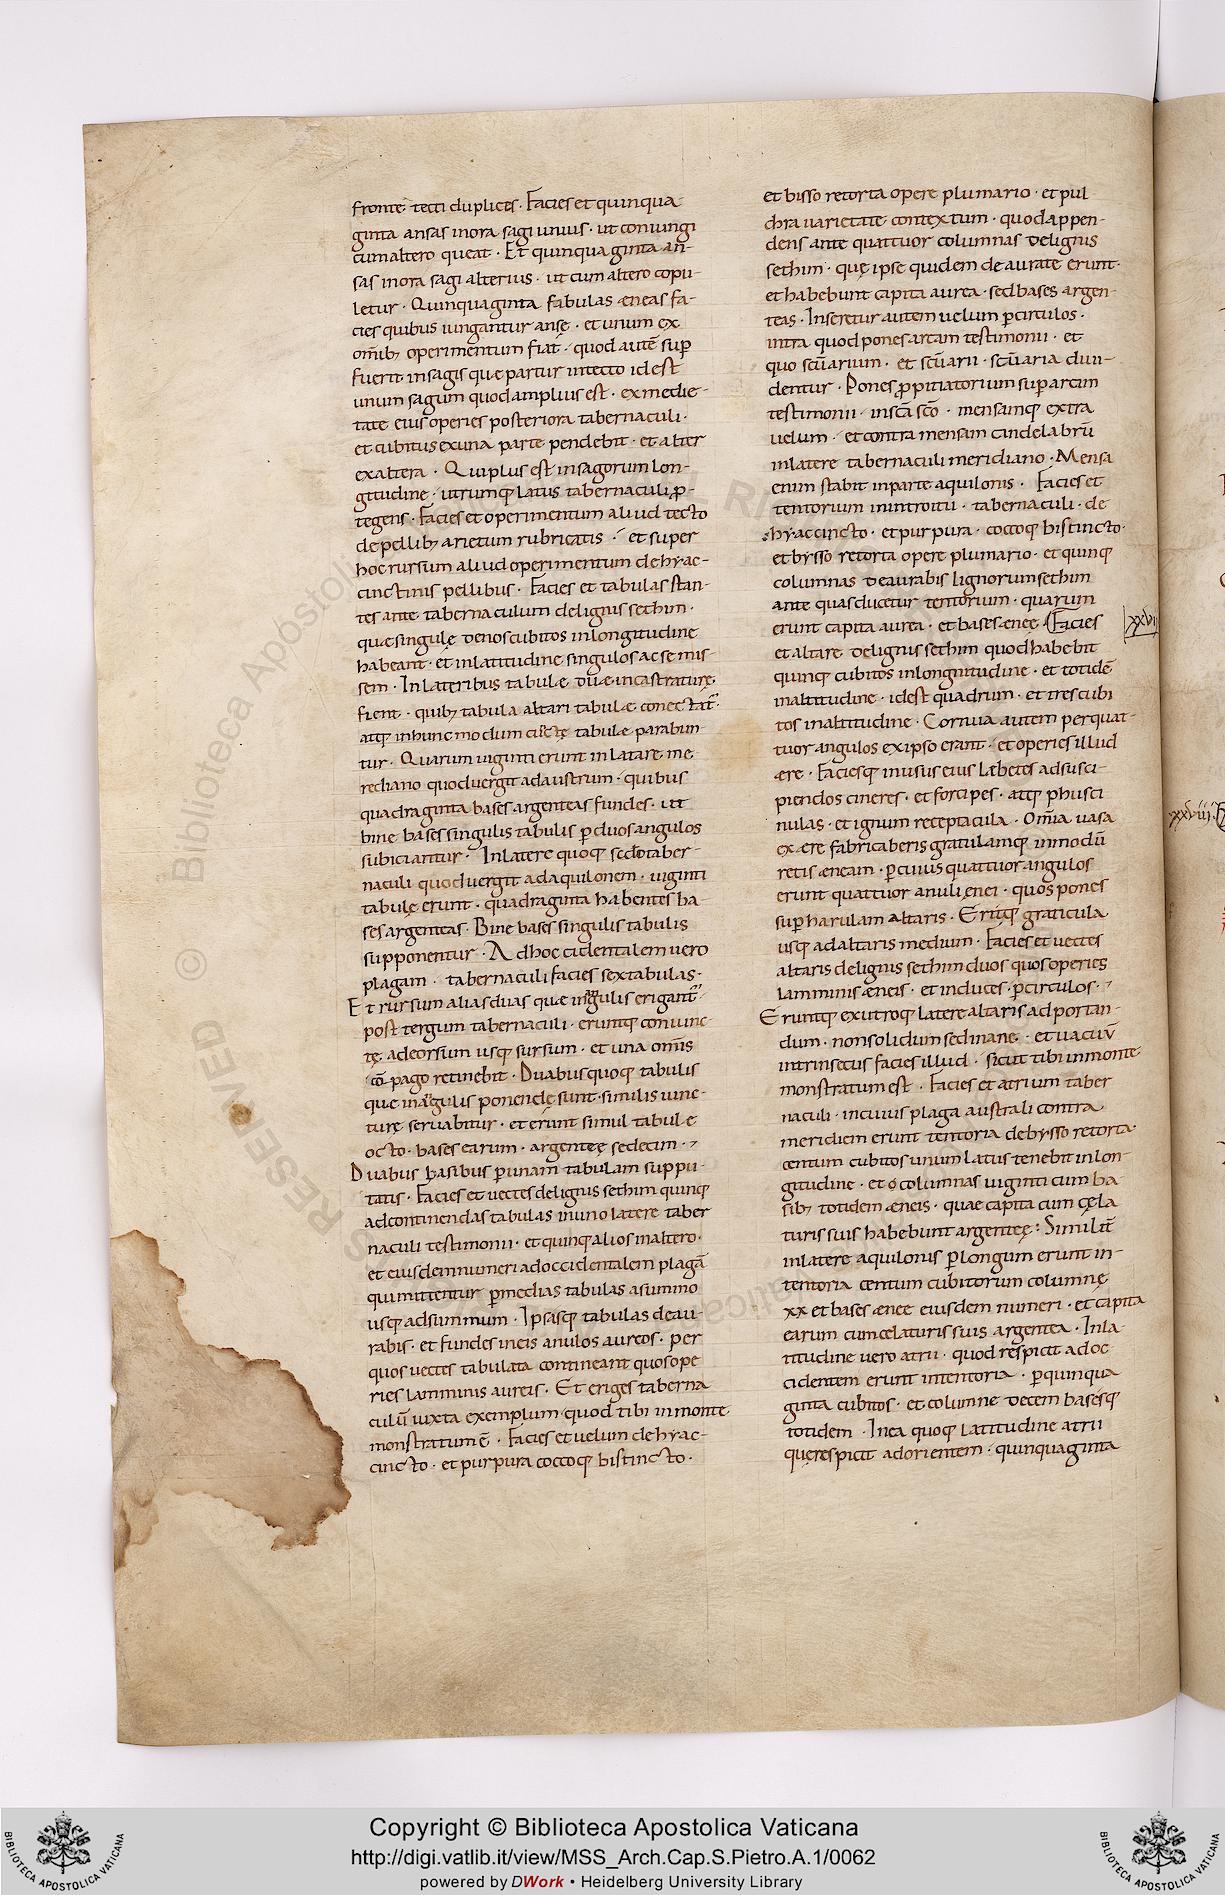 fronte tecti duplices · Facies et quinqua
ginta ansas in ora sagi unius · ut coniungi
cum altero queat · Et quinquaginta an-
sas in ora sagi alterius · ut cum altero copu-
letur · Quinquaginta fabulas æneas fa-
cies quibus iungantur ansę · et unum ex
omib; operimentum fiat · quod autē sup
fuerit in sagis quæ partur intecto id est
unum sagum quod amplius est · ex medie-
tate eius operies posteriora tabernaculi ·
et cubitus ex una parte pendebit · et alter
ex altera · Qui plus est in sagorum lon-
gitudine · utrumq; latus tabernaculi p-
tegens · Facies et operimentum aliud tecto
de pellib; arietum rubricatis · et super
hoc rursum aliud operimentum de hyac-
cinctinis pellibus · Facies et tabulas stan-
tes ante tabernaculum de lignis sethim ·
quæ singulę denos cubitos in longitudine
habeant · et in latitudine singulos ac semis
sem · In lateribus tabulæ duæ incastraturę
fient · quib; tabula altari tabulæ conectat̄ ·
atq; in hunc modum cūctę tabulæ parabun
tur · Quarum uiginti erunt in latare me
rediano quod uergit ad austrum · quibus
quadraginta bases argenteas fundes · ut
binę bases singulis tabulis p duos angulos
subiciantur · In latere quoq; scđo taber
naculi quod uergit ad aquilonem · uiginti
tabulę erunt · quadraginta habentes ba-
ses argenteas · Bine bases singulis tabulis
supponentur · Ad hoc cidentalem uero
plagam · tabernaculi facies sex tabulas ·
Et rursum alias duas quæ in angulis erigant̄ ·
post tergum tabernaculi · eruntq; coniunc-
tę a deorsum usq; sursum · et una omīs
cōpago retinebit · Duabus quoq; tabulis
quæ in angulis ponendę sunt · similis iunc-
turę seruabitur · et erunt simul tabulæ
octo · bases earum · argenteę sedecim ·
Duabus basibus p unam tabulam suppu-
tatis · Facies et uectes de lignis sethim quinq;
ad continendas tabulas in uno latere taber
naculi testimonii · et quinq; alios in altero ·
et eiusdem numeri ad occidentalem plagā
qui mittentur p medias tabulas a summo
usq; ad summum · Ipsasq; tabulas deau-
rabis · et fundes in eis anulos aureos · per
quos uectes tabulata contineant quos ope
ries lamminis aureis · Et eriges taberna
culū iuxta exemplum quod tibi in monte
monstratum ē · Facies et uelum de hyac-
cincto · et purpura coccoq; bis tincto ·
et bisso retorta opere plumario · et pul
chra uarietate contextum · quod appen-
dens ante quattuor columnas de lignis
sethim · quę ipse quidem deaurate erunt ·
et habebunt capita aurea · sed bases argen-
teas · Inseretur autem uelum p circulos ·
intra quod pones arcam testimonii · et
quo sc̄uarium · et sc̄uarii · sc̄uaria diui-
dentur · Pones propitiatorium sup arcam
testimonii · in sc̄a sc̄o · mensamq; extra
uelum · et contra mensam candelabrū
in latere tabernaculi meridiano · Mensa
enim stabit in parte aquilonis · Facies et
tentorium in introitu · tabernaculi · de
hyaccincto · et purpura · coccoq; bis tincto ·
et bysso retorta opere plumario · et quinq;
columnas deaurabis lignorum sethim
ante quas ducetur tentorium · quarum
erunt capita aurea · et bases ænee · Facies
xxvii
et altare de lignis sethim quod habebit
quinq; cubitos in longitudine · et totidē
in altitudine · id est quadrum · et tres cubi
tos in altitudine · Cornua autem per quat-
tuor angulos ex ipso erant · et operies illud
ære · Faciesq; in usus eius læbetes ad susci-
piendos cineres · et forcipes · atq; p huscí
nulas · et ignum receptacula · Omīa uasa
ex ære fabricaberis gratulamq; in modū
retis æneam · p cuius quattuor angulos
erunt quattuor anuli ęnei · quos pones
sup harulam altaris · Eritq; graticula
usq; ad altaris medium · Facies et uectes
altaris de lignis sethim duos quos operies
lamminis æneis · et induces · p circulos ·
Eruntq; ex utroq; latere altaris ad portan-
dum · non solidum sed inane · et uacuū
intrinsecus facies illud · sicut tibi in monte
monstratum est · Facies et atrium taber
naculi · in cuius plaga australi contra
meridiem erunt tentoria de bysso retorta ·
centum cubitos unum latus tenebit in lon-
gitudine · et columnas uiginti cum ba
sib; totidem æneis · quae capita cum cęla
turis suis habebunt argenteę : Similit̄
in latere aquilonis p longum erunt in-
tentoria centum cubitorum columnę
xx et bases ænee eiusdem numeri · et capita
earum cum celaturis suis argentea · In la-
titudine uero atrii · quod respicit ad oc
cidentem erunt in tentoria · p quinqua
ginta cubitos · et columne decem basesq;
totidem · In ea quoq; latitudine atrii
quę respicit ad orientem · quinquaginta
xxviii
Copyright © Biblioteca Apostolica Vaticana
http://digi.vatlib.it/view/MSS_Arch.Cap.S.Pietro.A.1/0062
powered by DWork • Heidelberg University Library